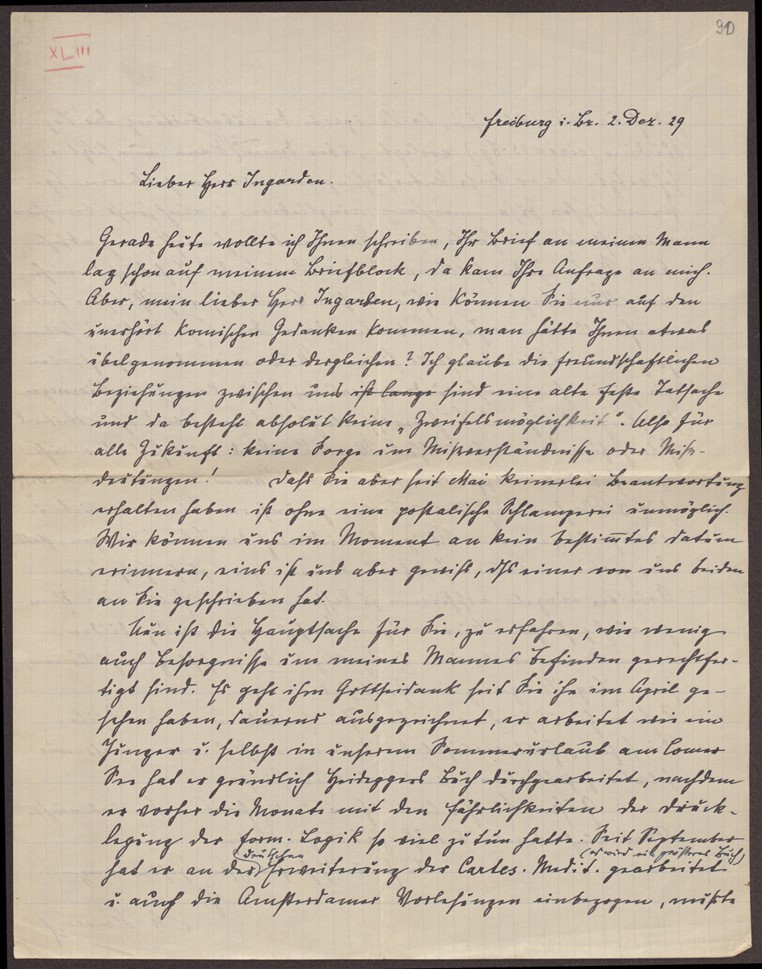 90
XLIII
Freiburg i. Br. 2. Dez. 29
Lieber Herr Ingarden.
Gerade heute wollte ich Ihnen schreiben, Ihr Brief an meinen Mann
lag schon auf meinem Briefblock, da kam Ihre Anfrage an mich.
Aber, mein lieber Herr Ingarden, wie können Sie nur auf den
unerhört komischen Gedanken kommen, man hätte Ihnen etwas
übelgenommen oder dergleichen? Ich glaube die freundschaftlichen
Beziehungen zwischen uns ist lange sind eine alte feste Tatsache
und da besteht absolut keine „Zweifelsmöglichkeit". Also für
alle Zukunft: keine Sorge um Mißverständnisse oder Miß-
deutungen! Daß Sie aber seit Mai keinerlei Beantwortung
erhalten haben ist ohne eine postalische Schlamperei unmöglich.
Wir können uns im Moment an kein bestimmtes Datum
erinnern, eins ist uns aber gewiß, dß einer von uns beiden
an Sie geschrieben hat.
Nun ist die Hauptsache für Sie, zu erfahren, wie wenig
auch Besorgnisse um meines Mannes Befinden gerechtfer-
tigt sind. Es geht ihm Gottseidank seit Sie ihn im April ge-
sehen haben, dauernd ausgezeichnet, er arbeitet wie ein
Junger u. selbst in unserem Sommerurlaub am Comer
See hat er gründlich Heideggers Buch durchgearbeitet, nachdem
er vorher die Monate mit den Fährlichkeiten der Druck-
legung der form. Logik so viel zu tun hatte. Seit September
hat er an der (deutschen) Erweiterung der Cartes. Medit. (es wird ein größeres Buch) gearbeitet
u. auch die Amsterdamer Vorlesungen einbezogen, mußte